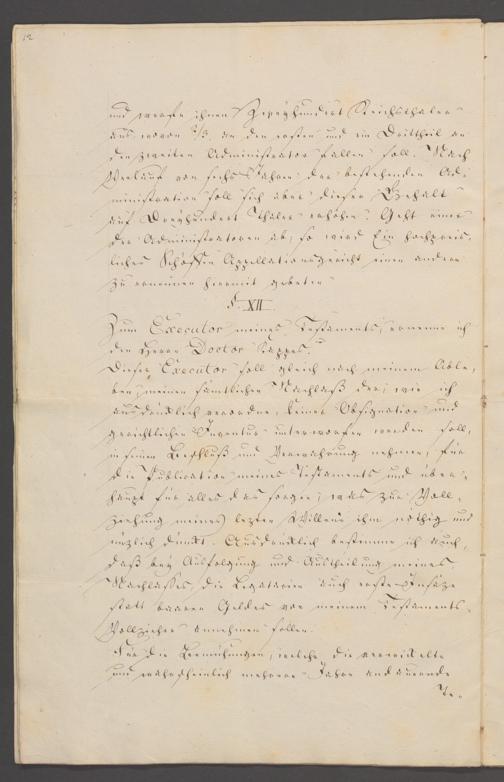 12
und werfe ihnen Zweyhundert Reichsthaler
aus wovon 2/3 an den ersten und ein Drittheil an
den zweiten Administrator fallen soll. Nach
Verlauf von sechs Jahren der bestehenden Ad-
ministration soll sich aber dieser Gehalt
auf Dreyhundert Thaler erhöhen. Geht einer
der Administratoren ab, so wird Ein hochpreis-
liches Schöffen Appellationsgericht einen andern
zu ernennen hiermit gebeten
§. XII.
Zum Executor meines Testaments, ernenne ich
den Herrn Doctor Kappes.
Dieser Executor soll gleich nach meinem Able-
ben, meinen sämtlichen Nachlaß der, wie ich
ausdrücklich verordne, keiner Obsignation und
gerichtlichen Inventur unterworfen werden soll,
in seinen Beschluß und Verwahrung nehmen, für
die Publication meines Testaments und über-
haupt für alles das sorgen, was zur Voll-
ziehung meines lezten Willens ihm nöthig und
nüzlich dünkt. Ausdrücklich bestimme ich auch,
daß bey Ausfolgung und Austheilung meines
Nachlasses, die Legatarien auch erste Insäze
statt baaren Geldes von meinem Testaments-
Vollzieher annehmen sollen.
Für die Bemühungen, welche die verwickelte
und wahrscheinlich mehrere Jahre andauernde